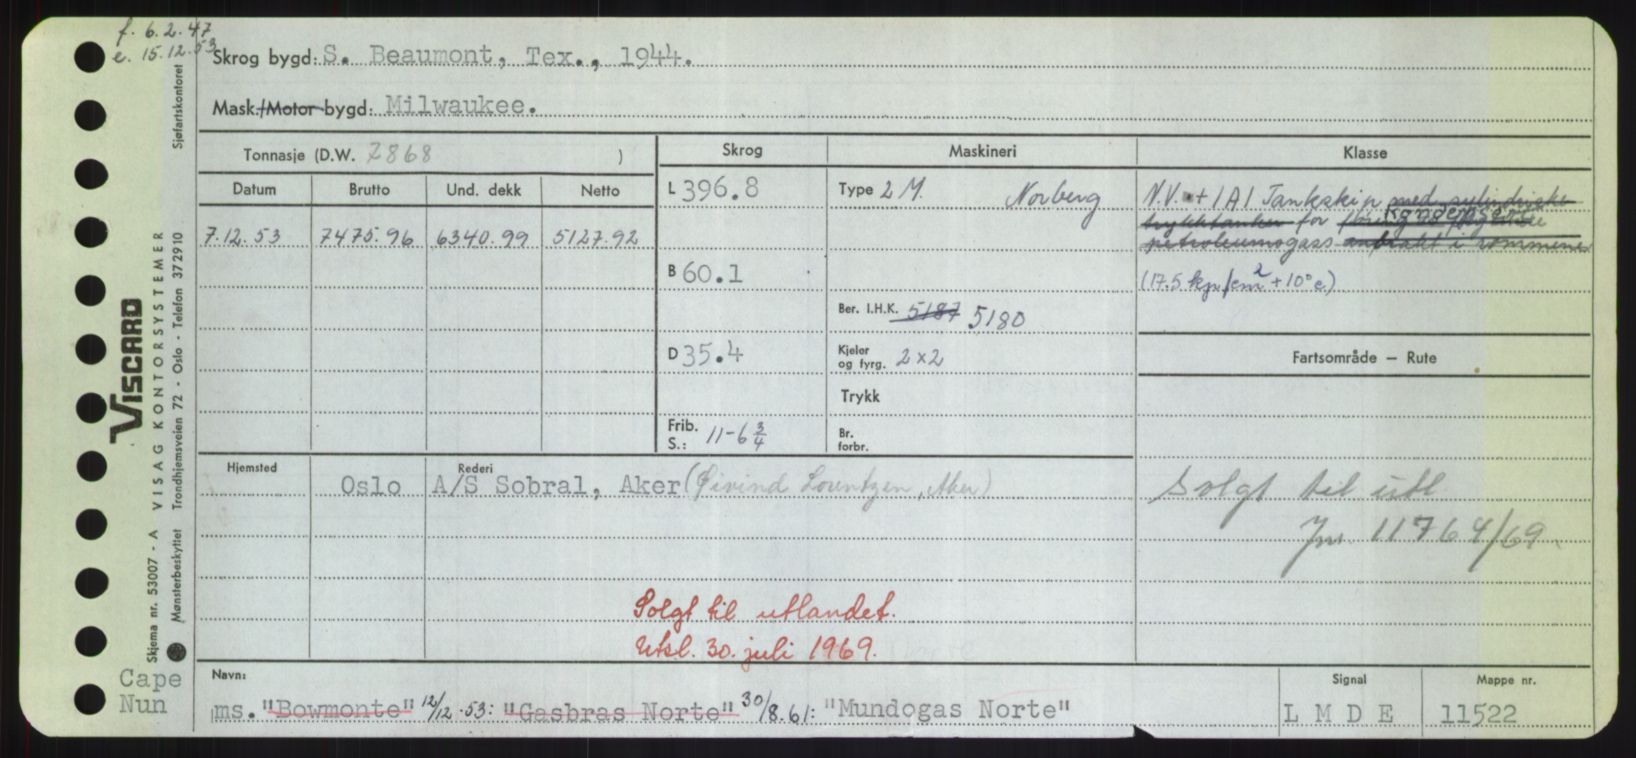 f. 6.2.47
e. 15.12.53
Skrog bygd: S. Beaumont, Tex., 1944.
Mask./Motor bygd: Milwaukee.
Tonnasje (D.W. 7868 )
Skrog
Maskineri
Klasse
Datum Brutto Und. dekk Netto
7.12.53 7475.96 6340.99 5127.92
L 396.8
B 60.1
D 35.4
Frib. S.: 11-6 3/4
Type 2 M. Norberg
Ber. I.H.K. 5187 5180
Kjeler og fyrg. 2x2
Trykk
Br. forbr.
N.V. + 1A1 Tankskip med sylindriske
trykktanker for
petroleumsgass i rommene
(17.5 kp/cm2 +10°c)
Fartsområde — Rute
Solgt til utl.
Jnr. 11764/69.
Hjemsted Rederi
Oslo A/S Sobral, Aker (Øivind Lorentzen, Aker)
Solgt til utlandet.
Utsl. 30. juli 1969.
Navn:
ms. "Bowmonte" 12/12-53: "Gasbras Norte" 30/8.61: "Mundogas Norte"
Signal
L M D E
Mappe nr.
11522
Cape
Nun
VISCARD
VISAG KONTORSYSTEMER
Skjema nr. 53007 - A
Mønsterbeskyttet Trondhjemsveien 72 - Oslo - Telefon 37 29 10 Sjøfartskontoret